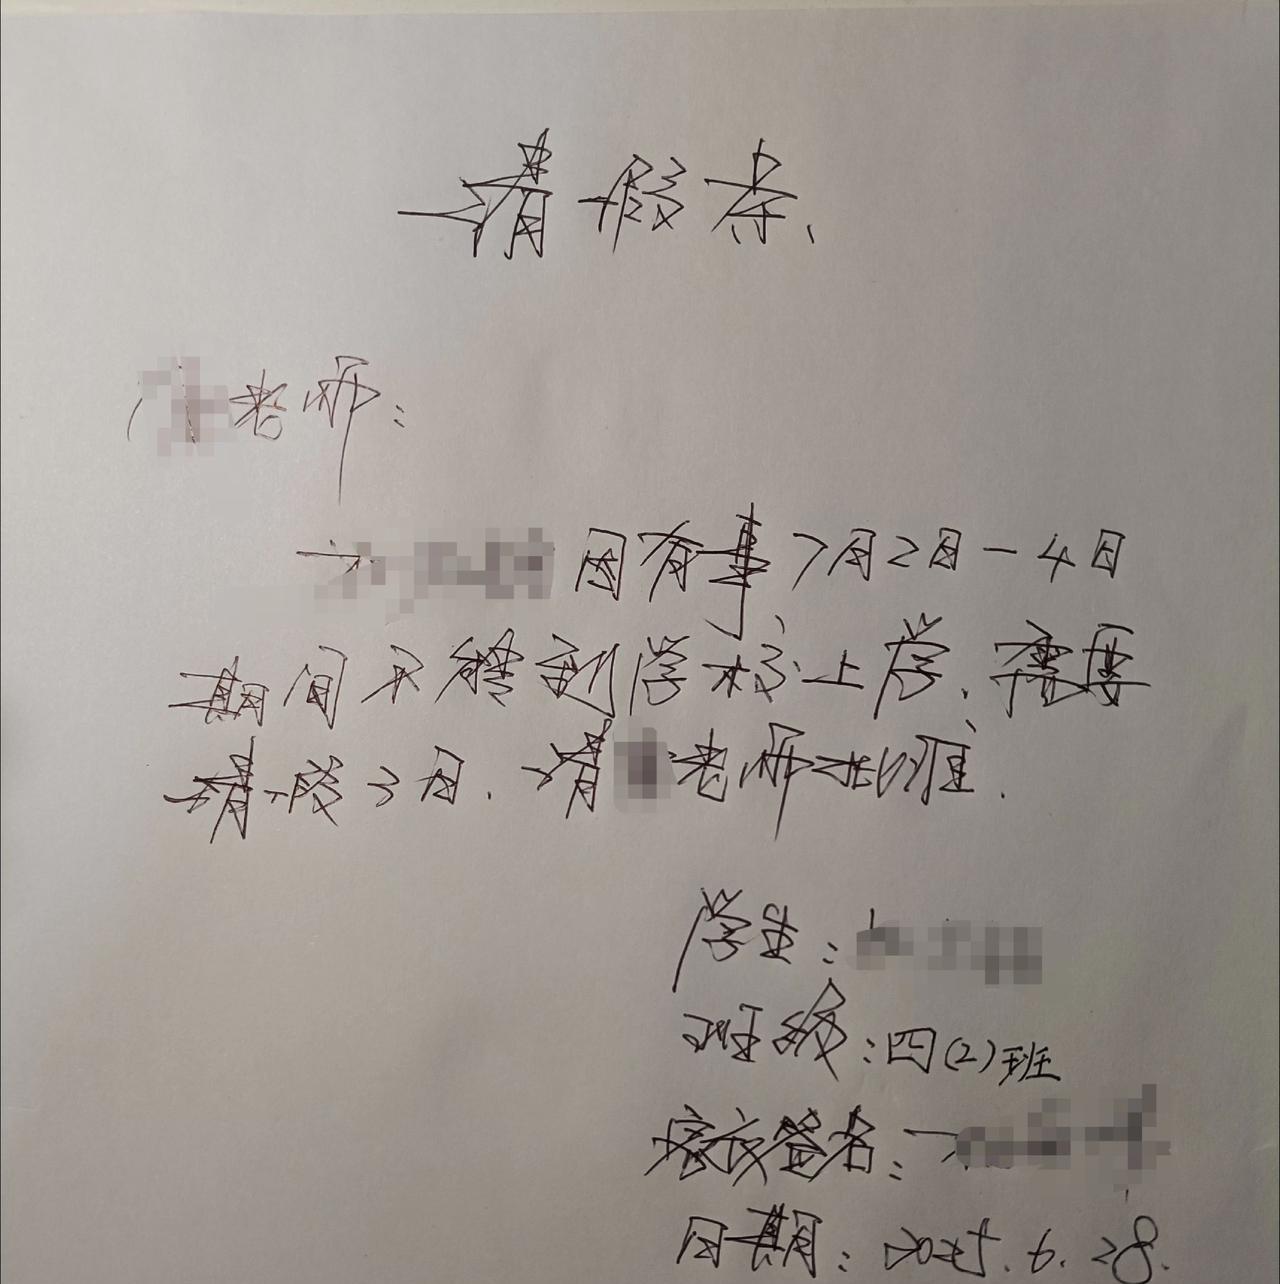 请假条、
老师：
因有事7月2日-4日
期间不能到学校上学、需要
请假3日.请 老师批准.
学生：
班级：四(2)班
家长签名：
日期：2025.6.28.